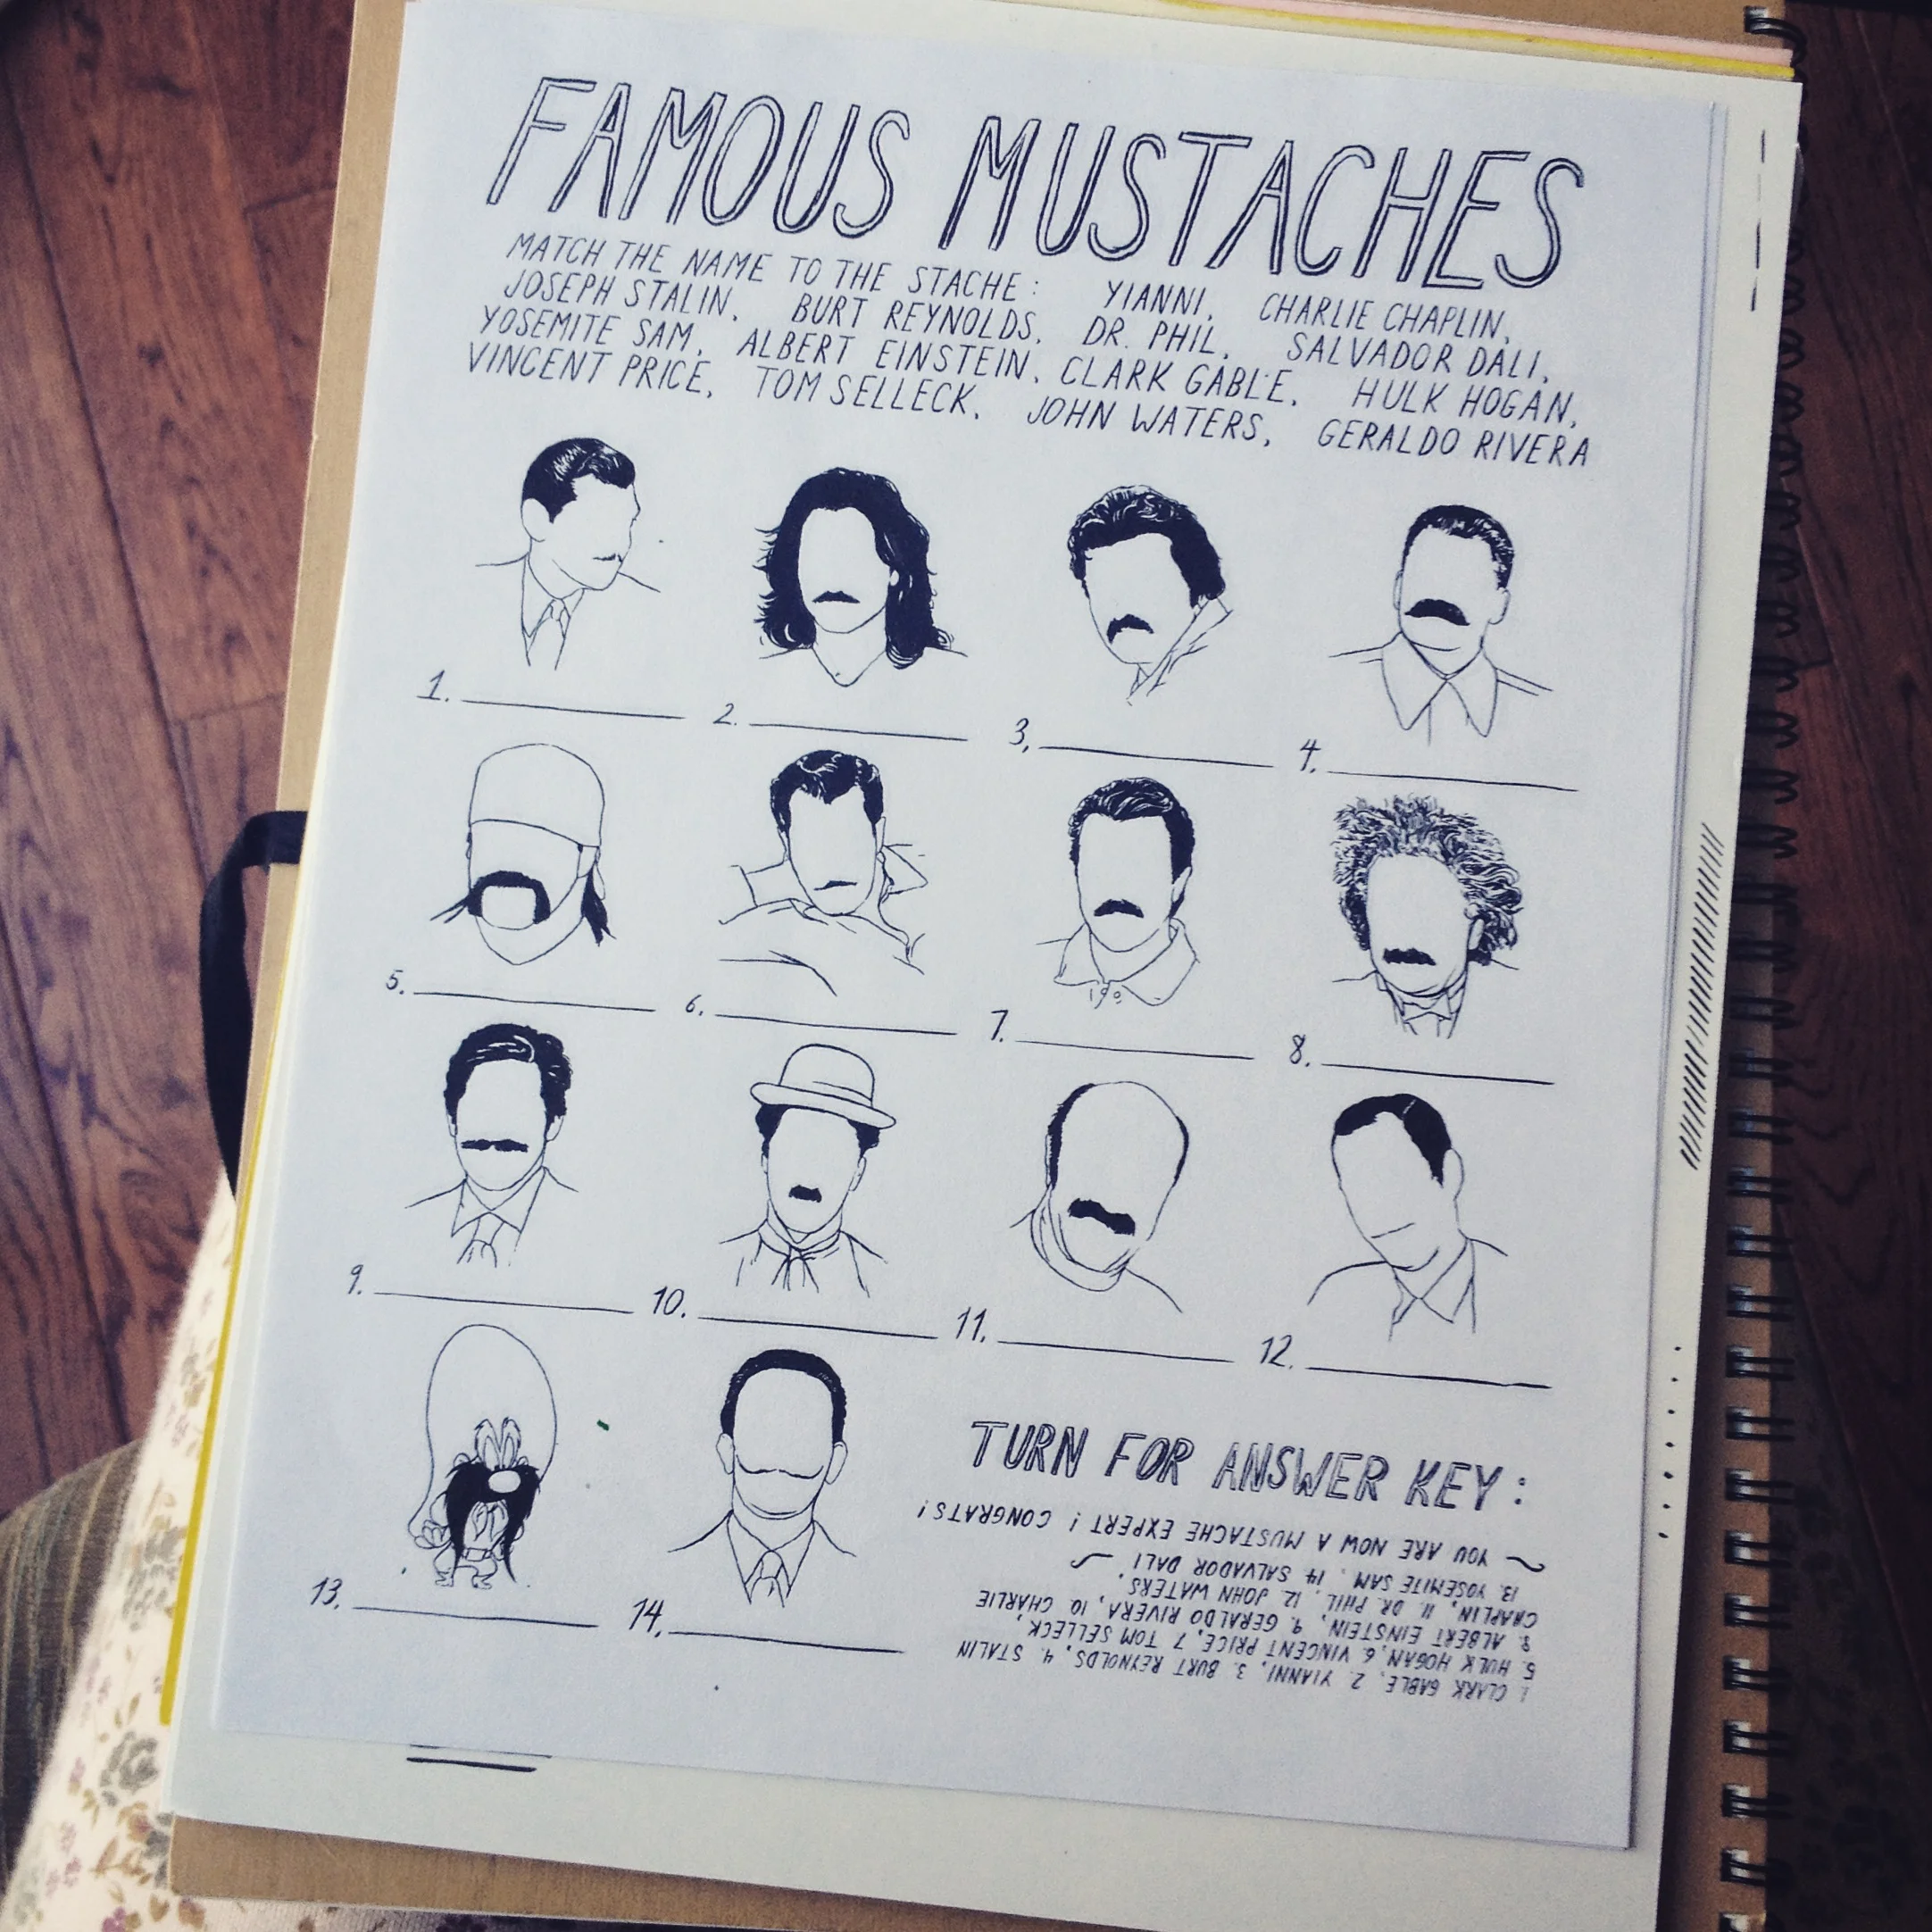 FAMOUS MUSTACHES
MATCH THE NAME TO THE STACHE: YIANNI, CHARLIE CHAPLIN,
JOSEPH STALIN, BURT REYNOLDS, DR. PHIL, SALVADOR DALI,
YOSEMITE SAM, ALBERT EINSTEIN, CLARK GABLE, HULK HOGAN,
VINCENT PRICE, TOM SELLECK, JOHN WATERS, GERALDO RIVERA
1. 2. 3. 4.
5. 6. 7. 8.
9. 10. 11. 12.
13. 14.
TURN FOR ANSWER KEY:
1. CLARK GABLE, 2. YIANNI, 3. BURT REYNOLDS, 4. STALIN
5. HULK HOGAN, 6. VINCENT PRICE, 7 TOM SELLECK,
8. ALBERT EINSTEIN, 9. GERALDO RIVERA, 10. CHARLIE
CHAPLIN, 11. DR. PHIL, 12. JOHN WATERS,
13. YOSEMITE SAM. 14 SALVADOR DALI
YOU ARE NOW A MUSTACHE EXPERT! CONGRATS!